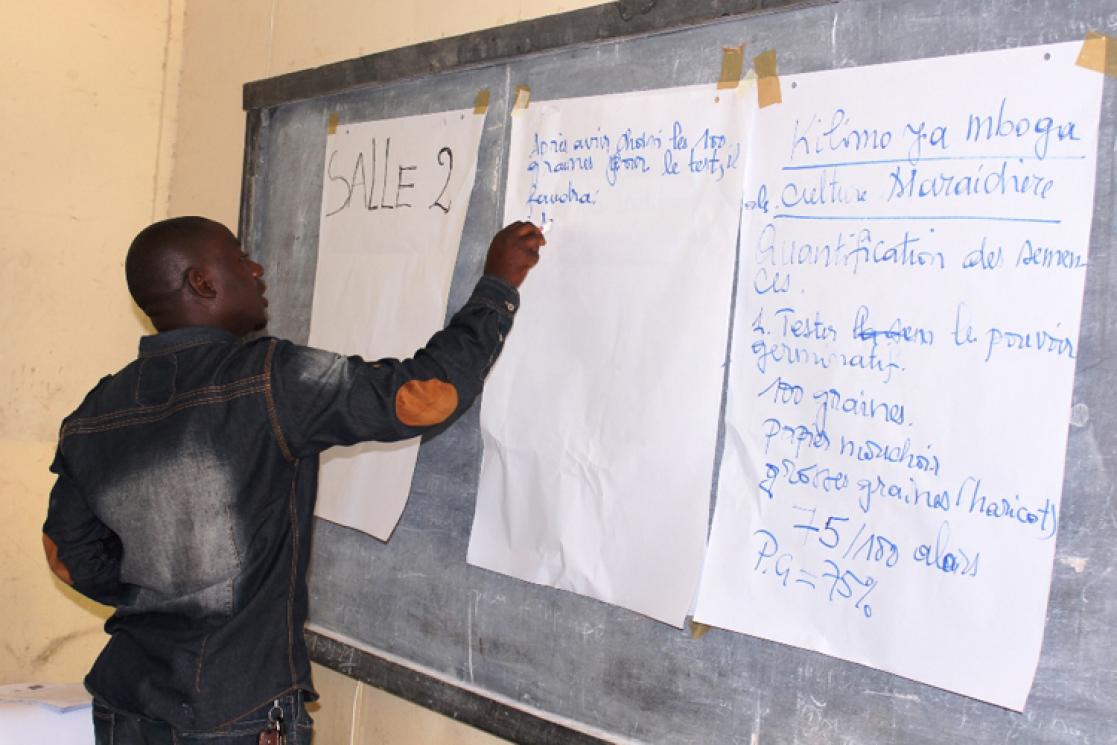 SALLE 2
Après avir choisi les 100
graines pour le test, il
faudra:
Kilimo ya mboga
Culture Maraîchère
Quantification des semen-
ces.
1. Tester le pouvoir
germinatif.
100 graines.
papier mouchoir
grosses graines (haricot)
75/100 alors
P.G = 75%